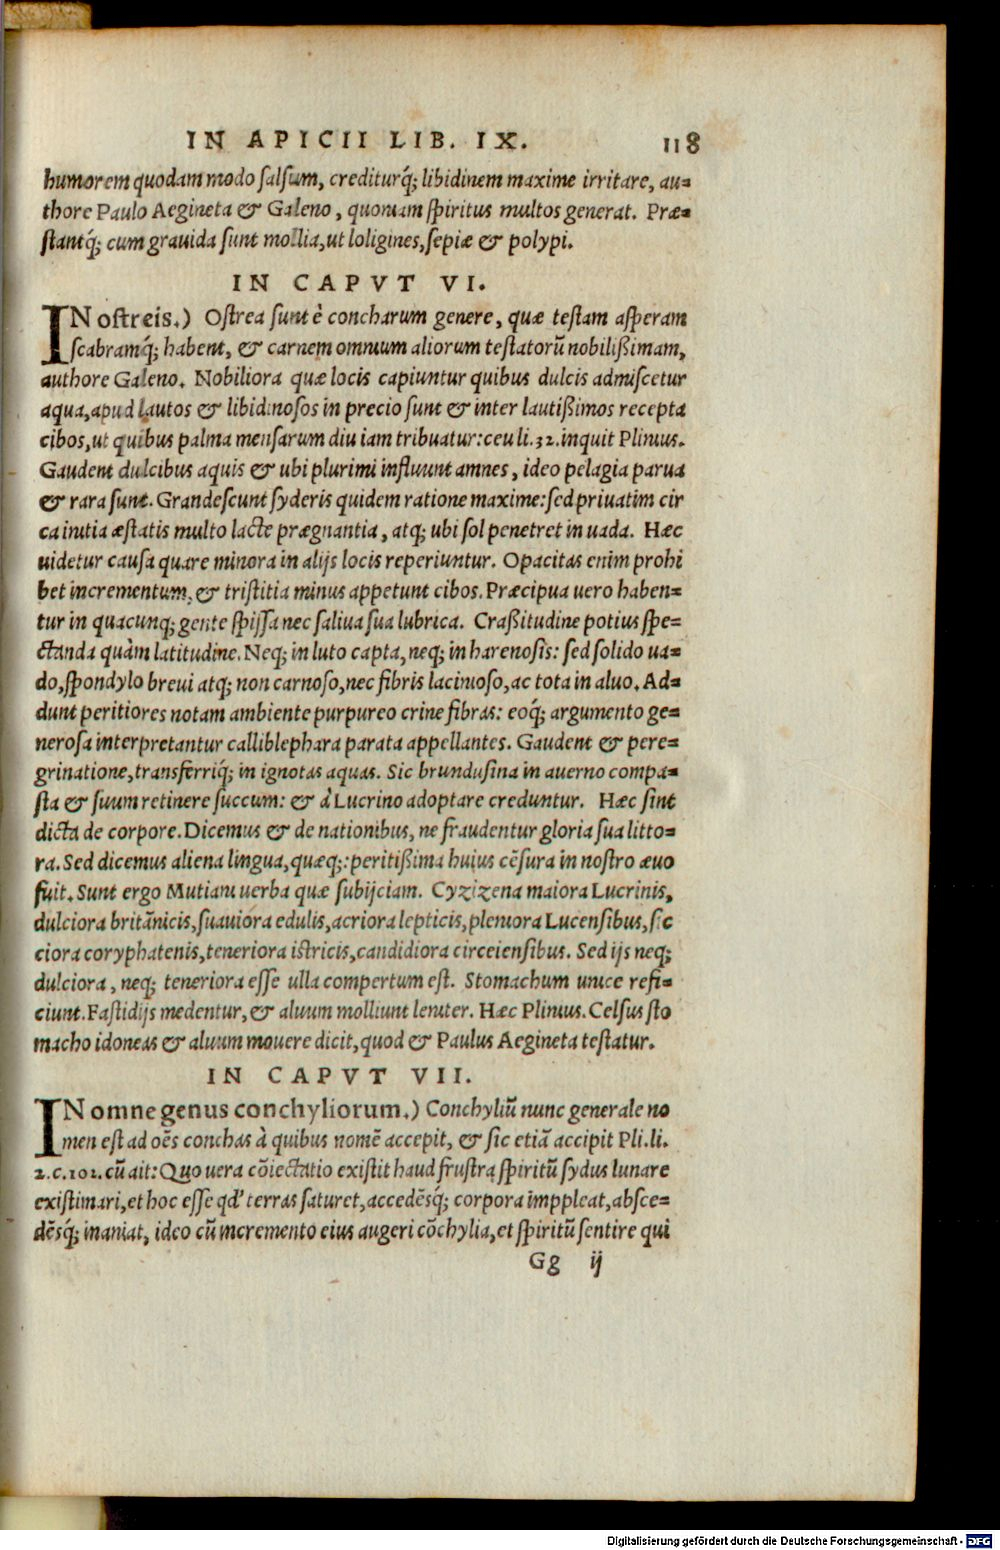 IN APICII LIB. IX. 118
humorem quodam modo ſalſum, crediturq́; libidinem maxime irritare, au-
thore Paulo Aegineta & Galeno, quoniam ſpiritus multos generat. Præ-
ſtantq́; cum grauida ſunt mollia, ut loligines, ſepiæ & polypi.
IN CAPVT VI.
IN oſtreis.) Oſtrea ſunt è concharum genere, quæ teſtam aſperam
ſcabramq́; habent, & carnem omnium aliorum teſtatorũ nobilißimam,
authore Galeno. Nobiliora quæ locis capiuntur quibus dulcis admiſcetur
aqua, apud lautos & libidinoſos in precio ſunt & inter lautißimos recepta
cibos, ut quibus palma menſarum diu iam tribuatur: ceu li. 32. inquit Plinius.
Gaudent dulcibus aquis & ubi plurimi influunt amnes, ideo pelagia parua
& rara ſunt. Grandeſcunt ſyderis quidem ratione maxime: ſed priuatim cir
ca initia æſtatis multo lacte prægnantia, atq; ubi ſol penetret in uada. Hæc
uidetur cauſa quare minora in alijs locis reperiuntur. Opacitas enim prohi
bet incrementum, & triſtitia minus appetunt cibos. Præcipua uero haben-
tur in quacunq; gente ſpiſſa nec ſaliua ſua lubrica. Craßitudine potius ſpe-
ctanda quàm latitudine. Neq; in luto capta, neq; in harenoſis: ſed ſolido ua-
do, ſpondylo breui atq; non carnoſo, nec fibris lacinioſo, ac tota in aluo. Ad-
dunt peritiores notam ambiente purpureo crine fibras: eoq́; argumento ge-
neroſa interpretantur calliblephara parata appellantes. Gaudent & pere-
grinatione, transferriq́; in ignotas aquas. Sic brunduſina in auerno compa-
ſta & ſuum retinere ſuccum: & à Lucrino adoptare creduntur. Hæc ſint
dicta de corpore. Dicemus & de nationibus, ne fraudentur gloria ſua litto-
ra. Sed dicemus aliena lingua, quæq;: peritißima huius cẽſura in noſtro æuo
fuit. Sunt ergo Mutiani uerba quæ ſubijciam. Cyzizena maiora Lucrinis,
dulciora britãnicis, ſuauiora edulis, acriora lepticis, pleniora Lucenſibus, ſic
ciora coryphatenis, teneriora iſtricis, candidiora circeienſibus. Sed ijs neq;
dulciora, neq; teneriora eſſe ulla compertum eſt. Stomachum unice refi-
ciunt. Faſtidijs medentur, & aluum molliunt leniter. Hæc Plinius. Celſus ſto
macho idoneas & aluum mouere dicit, quod & Paulus Aegineta teſtatur.
IN CAPVT VII.
IN omne genus conchyliorum.) Conchyliũ nunc generale no
men eſt ad oẽs conchas à quibus nomẽ accepit, & ſic etiã accipit Pli. li.
2. c. 102. cũ ait: Quo uera cõiectatio exiſtit haud fruſtra ſpiritũ ſydus lunare
exiſtimari, et hoc eſſe qd' terras ſaturet, accedẽsq́; corpora imppleat, abſce-
dẽsq́; inaniat, ideo cũ incremento eius augeri cõchylia, et ſpiritũ ſentire qui
Gg ij
Digitalisierung gefördert durch die Deutsche Forschungsgemeinschaft - DFG